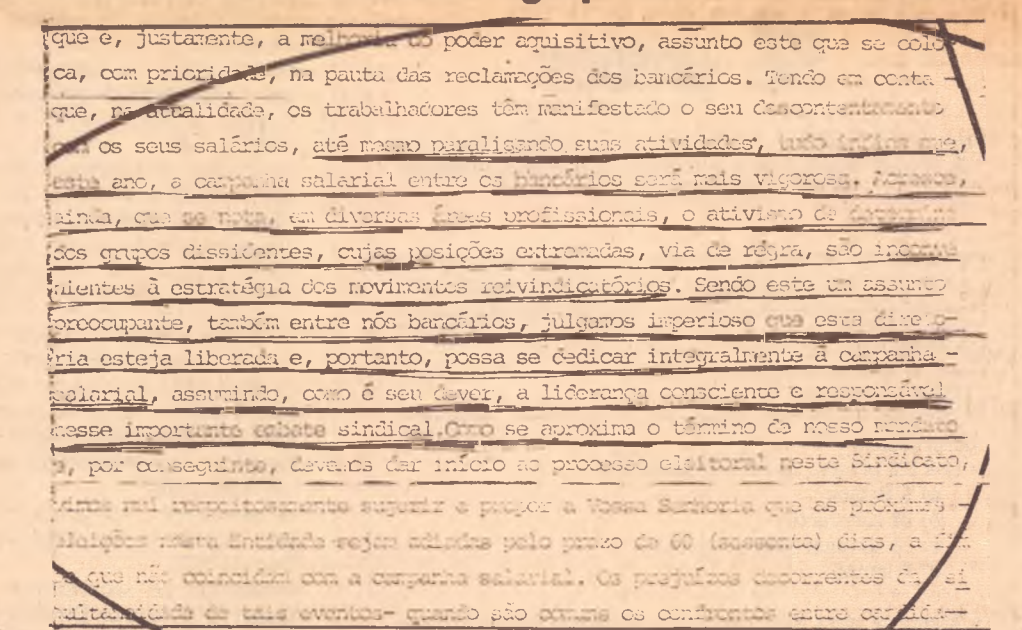 que e, justamente, a melhoria do poder aquisitivo, assunto este que se colo-
ca, com prioridade, na pauta das reclamações dos bancários. Tendo em conta -
que, na atualidade, os trabalhadores têm manifestado o seu descontentamento
com os seus salários, até mesmo paralisando suas atividades, tudo indica que,
este ano, a campanha salarial entre os bancários será mais vigorosa. Acresce,
ainda, que se nota, em diversas áreas profissionais, o ativismo de determina
dos grupos dissidentes, cujas posições extremadas, via de régra, são inconve
nientes à estratégia dos movimentos reivindicatórios. Sendo este um assunto
preocupante, também entre nós bancários, julgamos imperioso que esta direto-
ria esteja liberada e, portanto, possa se dedicar integralmente à campanha -
salarial, assumindo, como é seu dever, a liderança consciente e responsável
nesse importante embate sindical. Como se aproxima o término de nosso mandato
e, por conseguinte, devemos dar início ao processo eleitoral neste Sindicato,
vimos mui respeitosamente sugerir e propor a Vossa Senhoria que as próximas -
eleições nesta Entidade sejam adiadas pelo prazo de 60 (sessenta) dias, a fim
de que não coincidam com a campanha salarial. Os prejuízos decorrentes da si
multaneidade de tais eventos- quando são comuns os confrontos entre candida-